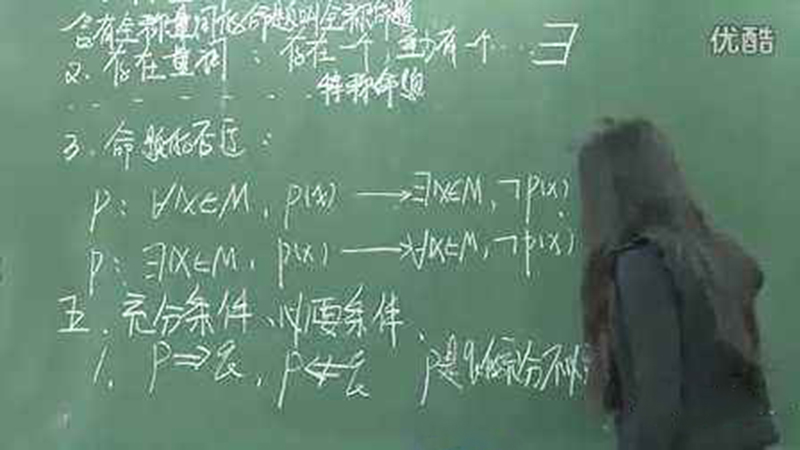 含有全称量词的命题叫全称命题
优酷
2. 存在量词：存在一个 至少有一个…∃
特称命题
3. 命题的否定：
p: ∀x∈M, p(x) → ∃x∈M, ¬p(x)
p: ∃x∈M, p(x) → ∀x∈M, ¬p(x)
五、充分条件、必要条件
1. p⇒q, p⇍q p是q的充分不